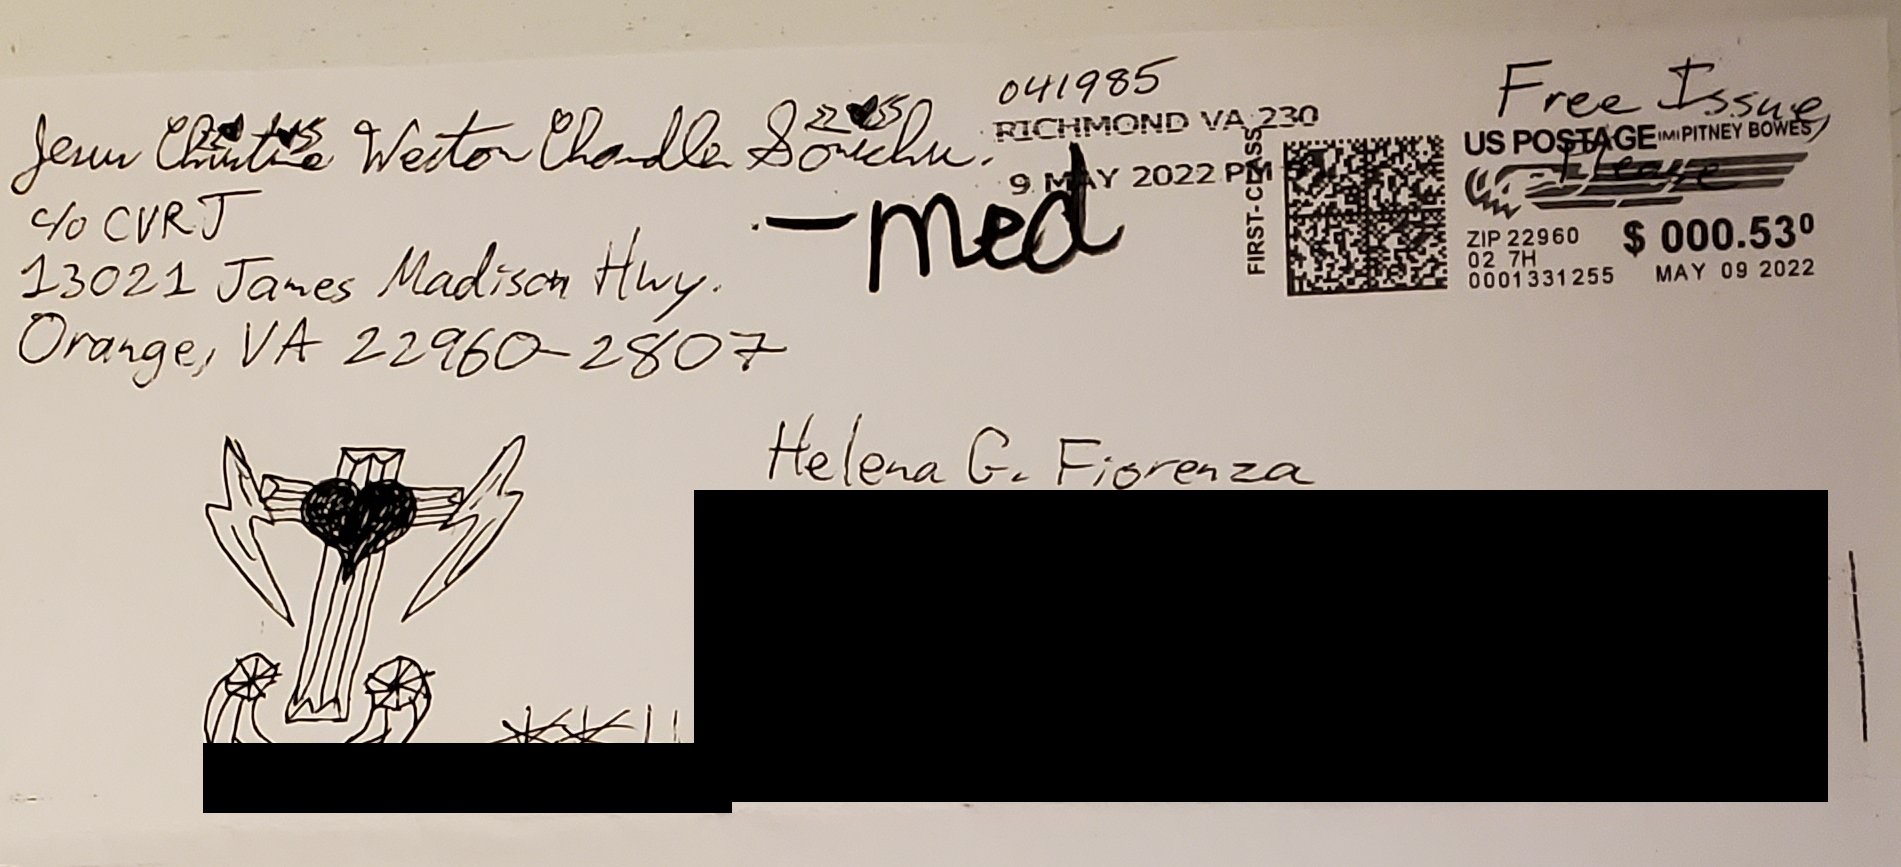 Jesus Christine Weston Chandler Sonichu.
c/o CVRJ
13021 James Madison Hwy.
Orange, VA 22960-2807
-med
041985
RICHMOND VA 230
9 MAY 2022 PM
FIRST-CLASS
Free Issue,
Please
US POSTAGE IMI PITNEY BOWES
ZIP 22960
02 7H
0001331255
$ 000.53⁰
MAY 09 2022
Helena G. Fiorenza